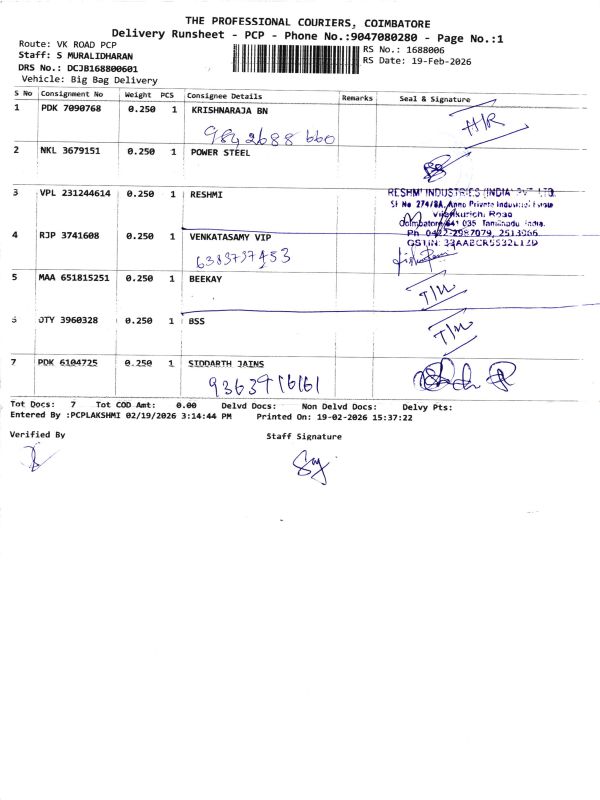 THE PROFESSIONAL COURIERS, COIMBATORE
Delivery Runsheet - PCP - Phone No.:9047080280 - Page No.:1
Route: VK ROAD PCP
Staff: S MURALIDHARAN
DRS No.: DCJB168800601
Vehicle: Big Bag Delivery
RS No.: 1688006
RS Date: 19-Feb-2026
S No Consignment No Weight PCS Consignee Details Remarks Seal & Signature
1 PDK 7090768 0.250 1 KRISHNARAJA BN H/R
9842688660
2 NKL 3679151 0.250 1 POWER STEEL
3 VPL 231244614 0.250 1 RESHMI
RESHMI INDUSTRIES (INDIA) PVT. LTD.
Sf No 274/8A, Anno Private Industrial Estate
Vilankurichi Road
Coimbatore 641 035 Tamilnadu India.
Ph 0422-2987079, 2513966
4 RJP 3741608 0.250 1 VENKATASAMY VIP
6383737453
5 MAA 651815251 0.250 1 BEEKAY T/M
6 OTY 3960328 0.250 1 BSS T/M
7 PDK 6104725 0.250 1 SIDDARTH JAINS
9363716161
Tot Docs: 7 Tot COD Amt: 0.00 Delvd Docs: Non Delvd Docs: Delvy Pts:
Entered By :PCPLAKSHMI 02/19/2026 3:14:44 PM Printed On: 19-02-2026 15:37:22
Verified By
Staff Signature